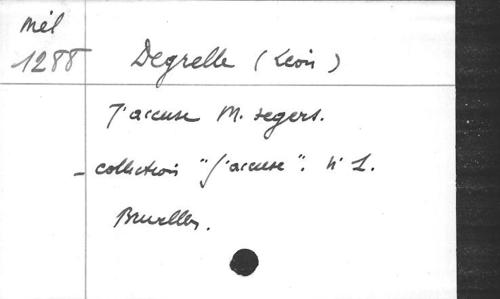 Mél
1288 Degrelle (Léon)
J'accuse M. Segers.
- collection "J'accuse". n° 1.
Bruxelles.